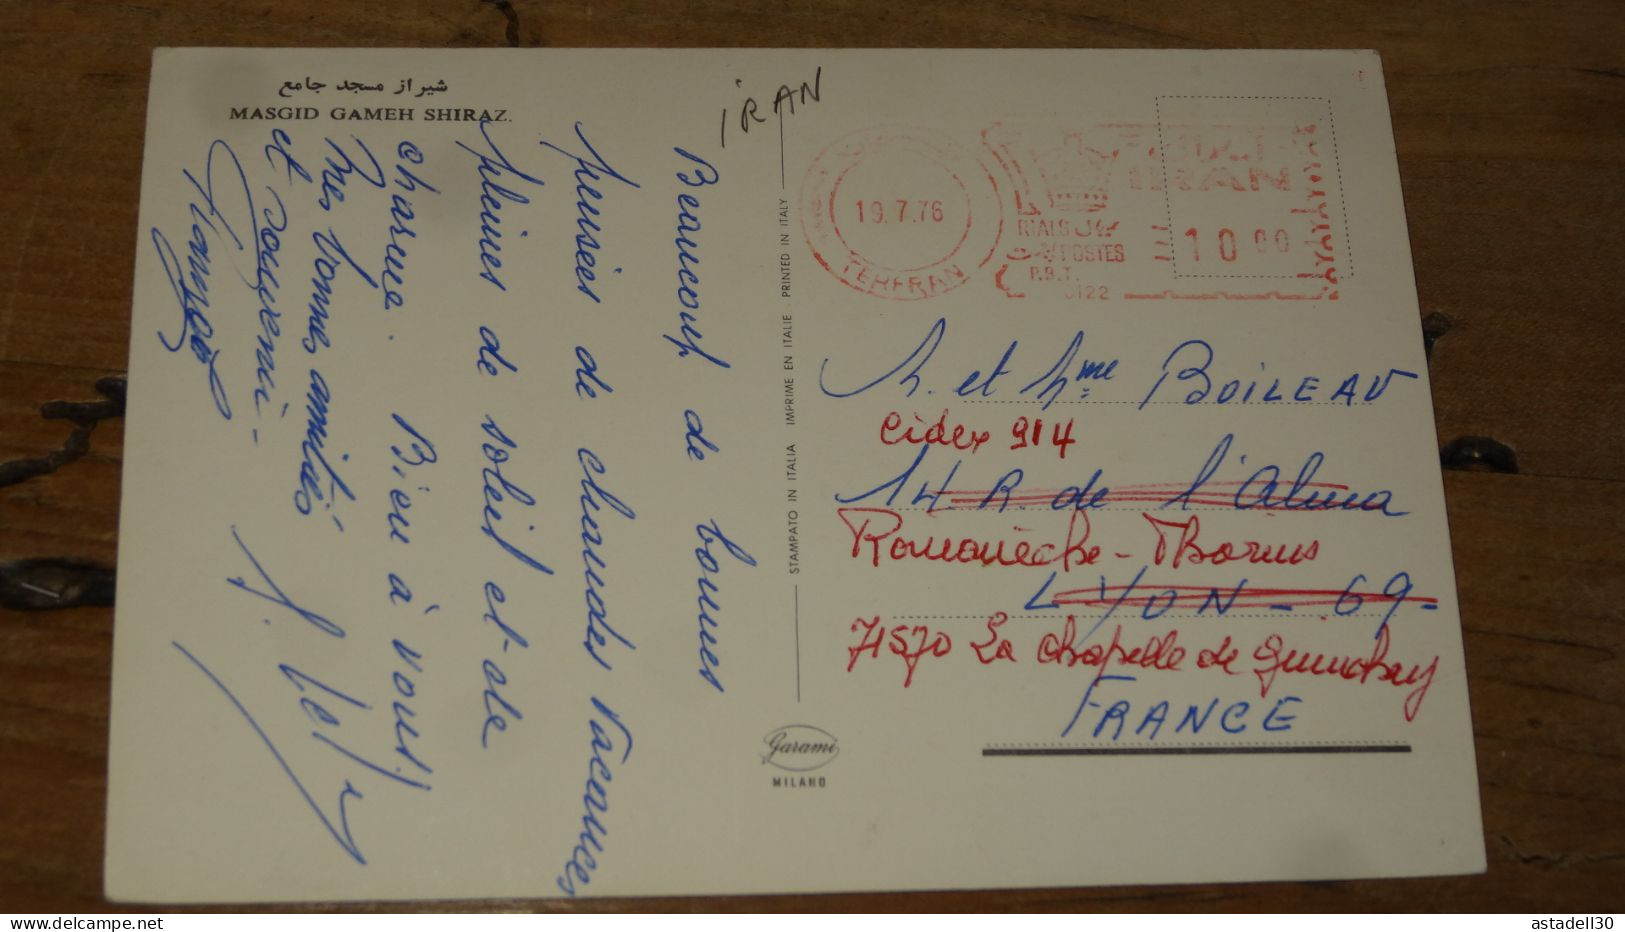 شیراز مسجد جامع
MASGID GAMEH SHIRAZ.
IRAN
Beaucoup de bonnes
pensées de chaudes vacances
pleines de soleil et de
charme. Bien à vous!
Mes bonnes amitiés
et souvenir-
STAMPATO IN ITALIA IMPRIME EN ITALIE . PRINTED IN ITALY
garami
MILANO
19.7.76
TEHERAN
IRAN
RIALS
POSTES
P.B.T.
0122
10 00
M. et Mme BOILEAU
Cidex 914
14 R. de l'Alma
Romanèche-Thorins
LYON - 69-
71570 La Chapelle de Guinchay
FRANCE
astadell30